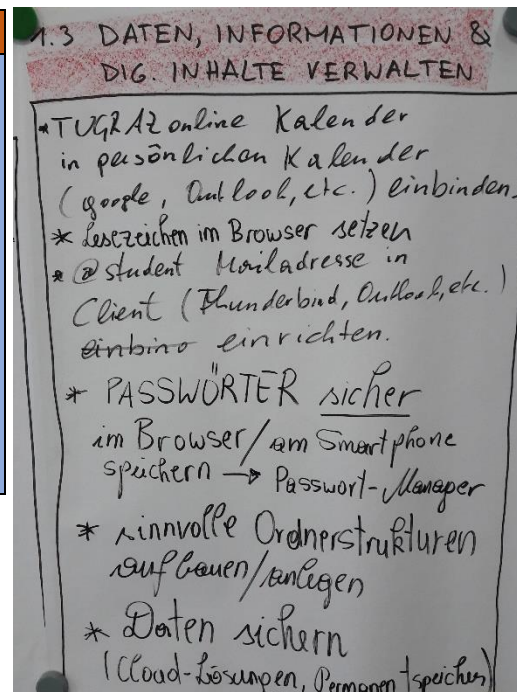 1.3 DATEN, INFORMATIONEN &
DIG. INHALTE VERWALTEN
* TUGRAZonline Kalender
in persönlichen Kalender
(google, Outlook, etc.) einbinden.
* Lesezeichen im Browser setzen
* @student Mailadresse in
Client (Thunderbird, Outlook, etc.)
einbind einrichten.
* PASSWÖRTER sicher
im Browser/am Smartphone
speichern → Passwort-Manager
* sinnvolle Ordnerstrukturen
aufbauen/anlegen
* Daten sichern
(Cloud-Lösungen, Permanentspeicher)